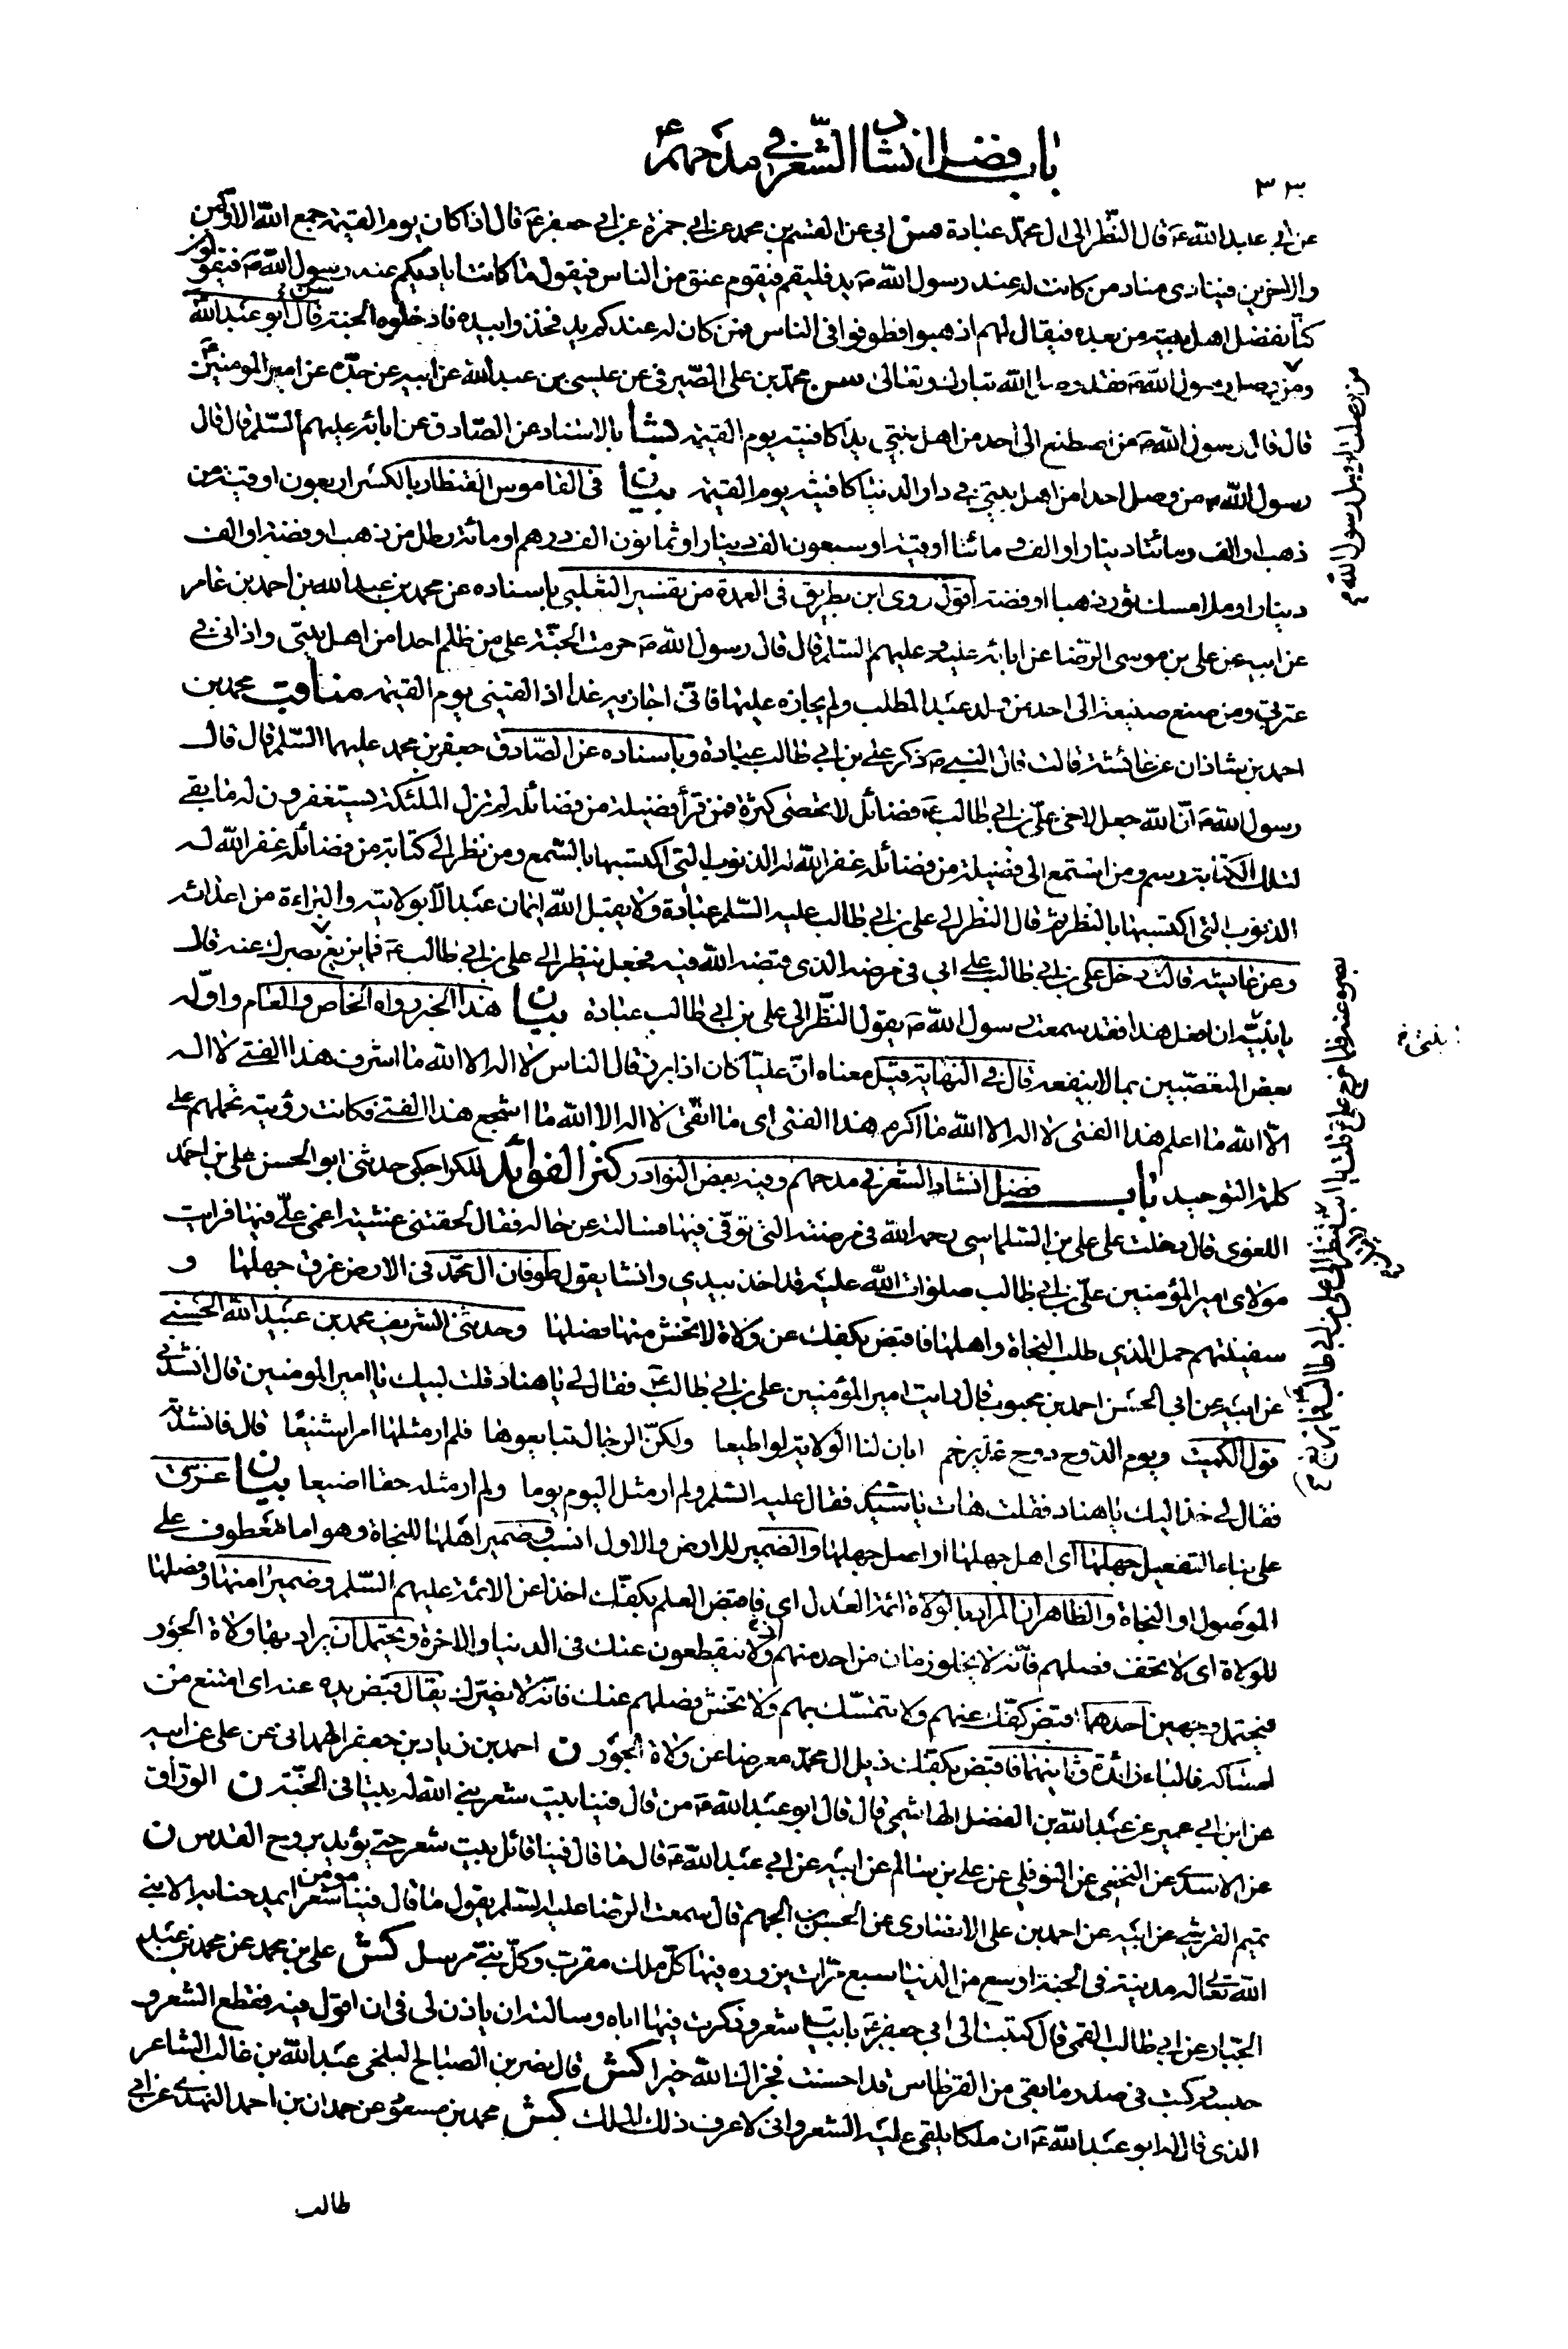 باب فضل انشاد الشعر في مدحهم ع
٣٣٠
عن ابي عبد الله ع قال النظر الى ال محمد عبادة سن ابي عن القسم بن محمد عن ابي حمزة عن ابي جعفر ع قال اذا كان يوم القيمة جمع الله الاولين
والاخرين فينادى مناد من كانت له عند رسول الله ص يد فليقم فيقوم عنق من الناس فيقول ما كانت اياديكم عند رسول الله ص فيقولون
كنا نفضل اهل بيته من بعده فيقال لهم اذهبوا فطوفوا في الناس فمن كان له عندكم يد فخذوا بيده فادخلوه الجنة سن قال ابو عبد الله ع
ومن وصلنا وصل رسول الله ص فقد وصل الله تبارك وتعالى سن محمد بن على الصيرفي عن عيسى بن عبد الله عن ابيه عن جده عن امير المومنين ع
قال قال رسول الله ص من اصطنع الى احد من اهل بيتي يدا كافيته يوم القيمة بشا بالاسناد عن الصادق عن ابائه عليهم السلم قال قال
رسول الله ص من وصل احدا من اهل بيتي في دار الدنيا كافيته يوم القيمة بيان في القاموس القنطار بالكسر اربعون اوقية من
ذهب او الف ومائتا دينار او الف ومائتا اوقية او سبعون الف دينار او ثمانون الف درهم او مائة رطل من ذهب او فضة او الف
دينار او ملء امسك ثور ذهبا او فضة اقول روى ابن بطريق في العمدة من تفسير الثعلبي باسناده عن محمد بن عبد الله بن احمد بن عامر
عن ابيه عن على بن موسى الرضا عن ابائه عليه وعليهم السلم قال قال رسول الله ص حرمت الجنة على من ظلم احدا من اهل بيتي واذانى في
عترتي ومن صنع صنيعة الى احد من ولد عبد المطلب ولم يجازه عليها فانى اجازيه غدا اذا لقيني يوم القيمة مناقب محمد بن
احمد بن شاذان عن عائشة قالت قال النبي ص ذكر على بن ابي طالب عبادة وباسناده عن الصادق جعفر بن محمد عليهما السلم قال قال
رسول الله ص ان الله جعل لاخى على بن ابي طالب ع فضائل لا تحصى كثرة فمن قرأ فضيلة من فضائله لم تزل الملئكة يستغفرون له ما بقى
لتلك الكتابة رسم ومن استمع الى فضيلة من فضائله غفر الله له الذنوب التي اكتسبها بالسمع ومن نظر الى كتابة من فضائله غفر الله له
الذنوب التي اكتسبها بالنظر ثم قال النظر الى على بن ابي طالب عليه السلم عبادة ولا يقبل الله ايمان عبد الا بولايته والبراءة من اعدائه
وعن عايشة قالت دخل على بن ابي طالب على ابي في مرضه الذي قبضه الله فيه فجعل ينظر الى على بن ابي طالب ع فما يزيغ بصره عنه قال
يا بنية ان افعل هذا فقد سمعت رسول الله ص يقول النظر الى على بن ابي طالب عبادة بيان هذا الخبر رواه الخاص والعام واوله
بعض المتعصبين بما لا ينفعه قال في النهاية قيل معناه ان عليا كان اذا برز قال الناس لا اله الا الله ما اشرف هذا الفتى لا اله
الا الله ما اعلم هذا الفتى لا اله الا الله ما اكرم هذا الفتى اى ما اتقى لا اله الا الله ما اشجع هذا الفتى فكانت رؤيته تحملهم على
كلمة التوحيد باب فضل انشاد الشعر في مدحهم وفيه بعض النوادر كنز الفوائد للكراجكى حدثنى ابو الحسن على بن احمد
اللغوى قال دخلت على على بن السلماسى رحمه الله في مرضته التي توفى فيها فسالته عن حاله فقال لحقتنى غشية اغمى على فيها فرايت
مولاى امير المؤمنين على بن ابي طالب صلوات الله عليه قد اخذ بيدي وانشا يقول طوفان ال محمد في الارض غرق جهلها و
سفينتهم حمل الذي طلب النجاة واهلها فاقبض بكفك عن ولاة لا تخش منها فضلها وحدثنى الشريف محمد بن عبيد الله الحسيني
عن ابيه عن ابي الحسن احمد بن محبوب قال رايت امير المؤمنين على بن ابي طالب ع فقال لي يا هناد قلت لبيك يا امير المومنين قال انشدني
قول الكميت ويوم الدوح دوح غدير خم ابان لنا الولاية لو اطيعا ولكن الرجال تبايعوها فلم ار مثلها امرا شنيعا قال فانشدته
فقال لي خذ اليك يا هناد فقلت هات يا سيدي فقال عليه السلم ولم ار مثل اليوم يوما ولم ار مثله حقا اضيعا بيان غرق
على بناء التفعيل جهلها اى اهل جهلها او اصل جهلها والضمير للارض والاول انسب وضمير اهلها للنجاة وهو اما معطوف على
الموصول او النجاة والظاهر ان المراد بالولاة ائمة العدل اى فاقبض العلم بكفك اخذا عن الائمة عليهم السلم وضمير امنها وفضلها
للولاة اى لا تخف فصلهم فانه لا يخلو زمان من احد منهم ولا ينقطعون عنك في الدنيا والاخرة ويحتمل ان يراد بها ولاة الجور
فيحتمل وجهين احدهما اقبض كفك عنهم ولا تتمسك بهم ولا تخش فضلهم عنك فانه لا يضرك يقال قبض يده عنه اى امتنع من
امساكه فالباء زائدة وثانيهما فاقبض بكفك ذيل ال محمد معرضا عن ولاة الجور ن احمد بن زياد بن جعفر الهمدانى عن على عن ابيه
عن ابن ابي عمير عن عبد الله بن الفضل الهاشمى قال قال ابو عبد الله ع من قال فينا بيت شعر بنى الله له بيتا في الجنة ن الوراق
عن الاسدى عن النخعى عن النوفلى عن على بن سالم عن ابيه عن ابي عبد الله ع قال ما قال فينا قائل بيت شعر حتى يؤيد بروح القدس ن
تميم القرشى عن ابيه عن احمد بن على الانصارى عن الحسن بن الجهم قال سمعت الرضا عليه السلم يقول ما قال فينا مومن شعرا يمدحنا به الا بنى
الله تعالى له مدينة في الجنة اوسع من الدنيا سبع مرات يزوره فيها كل ملك مقرب وكل نبي مرسل كش على بن محمد عن محمد بن عبد
الجبار عن ابي طالب القمى قال كتبت الى ابي جعفر ع بابيات شعر وذكرت فيها اباه وسالته ان ياذن لي في ان اقول فيه فقطع الشعر و
حبسه وكتب في صدر ما بقى من القرطاس قد احسنت فجزاك الله خيرا كش قال نصر بن الصباح البلخى عبد الله بن غالب الشاعر
الذى قال له ابو عبد الله ع ان ملكا يلقى عليه الشعر وانى لاعرف ذلك الملك كش محمد بن مسعود عن حمدان بن احمد النهدى عن ابي
طالب